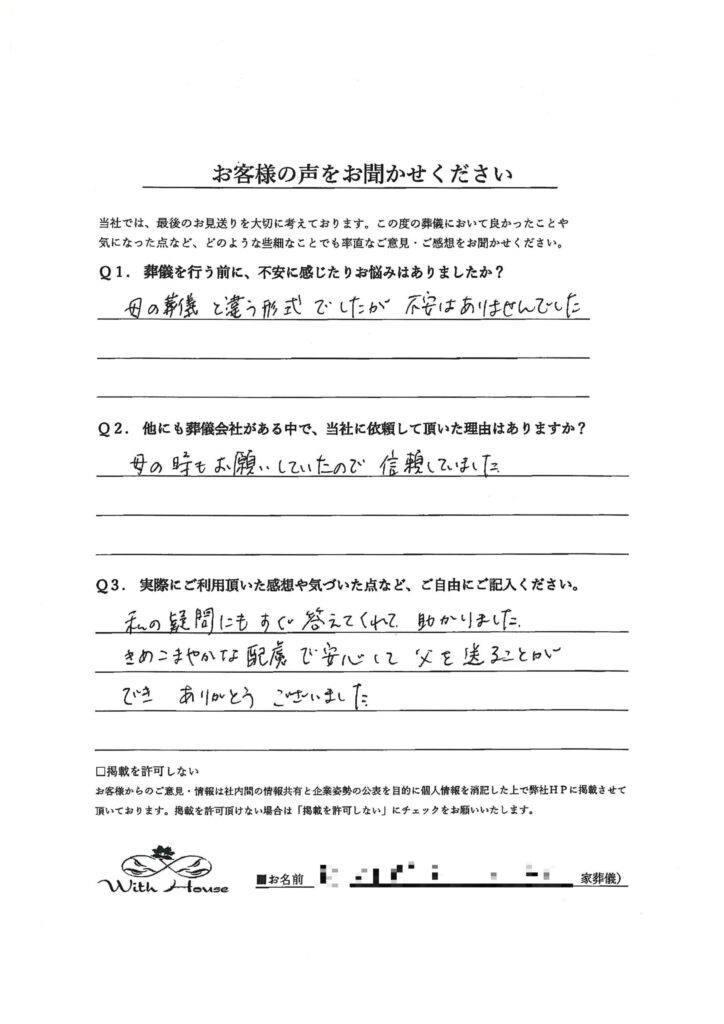 お客様の声をお聞かせください
当社では、最後のお見送りを大切に考えております。この度の葬儀において良かったことや
気になった点など、どのような些細なことでも率直なご意見・ご感想をお聞かせください。
Q1. 葬儀を行う前に、不安に感じたりお悩みはありましたか？
母の葬儀と違う形式でしたが 不安はありませんでした
Q2. 他にも葬儀会社がある中で、当社に依頼して頂いた理由はありますか？
母の時もお願いしていたので 信頼していました
Q3. 実際にご利用頂いた感想や気づいた点など、ご自由にご記入ください。
私の疑問にもすぐ答えてくれて 助かりました
きめこまやかな配慮で安心して 父を送ることが
でき ありがとう ございました
□掲載を許可しない
お客様からのご意見・情報は社内間の情報共有と企業姿勢の公表を目的に個人情報を消記した上で弊社HPに掲載させて
頂いております。掲載を許可頂けない場合は「掲載を許可しない」にチェックをお願いいたします。
With House
■お名前 家葬儀）